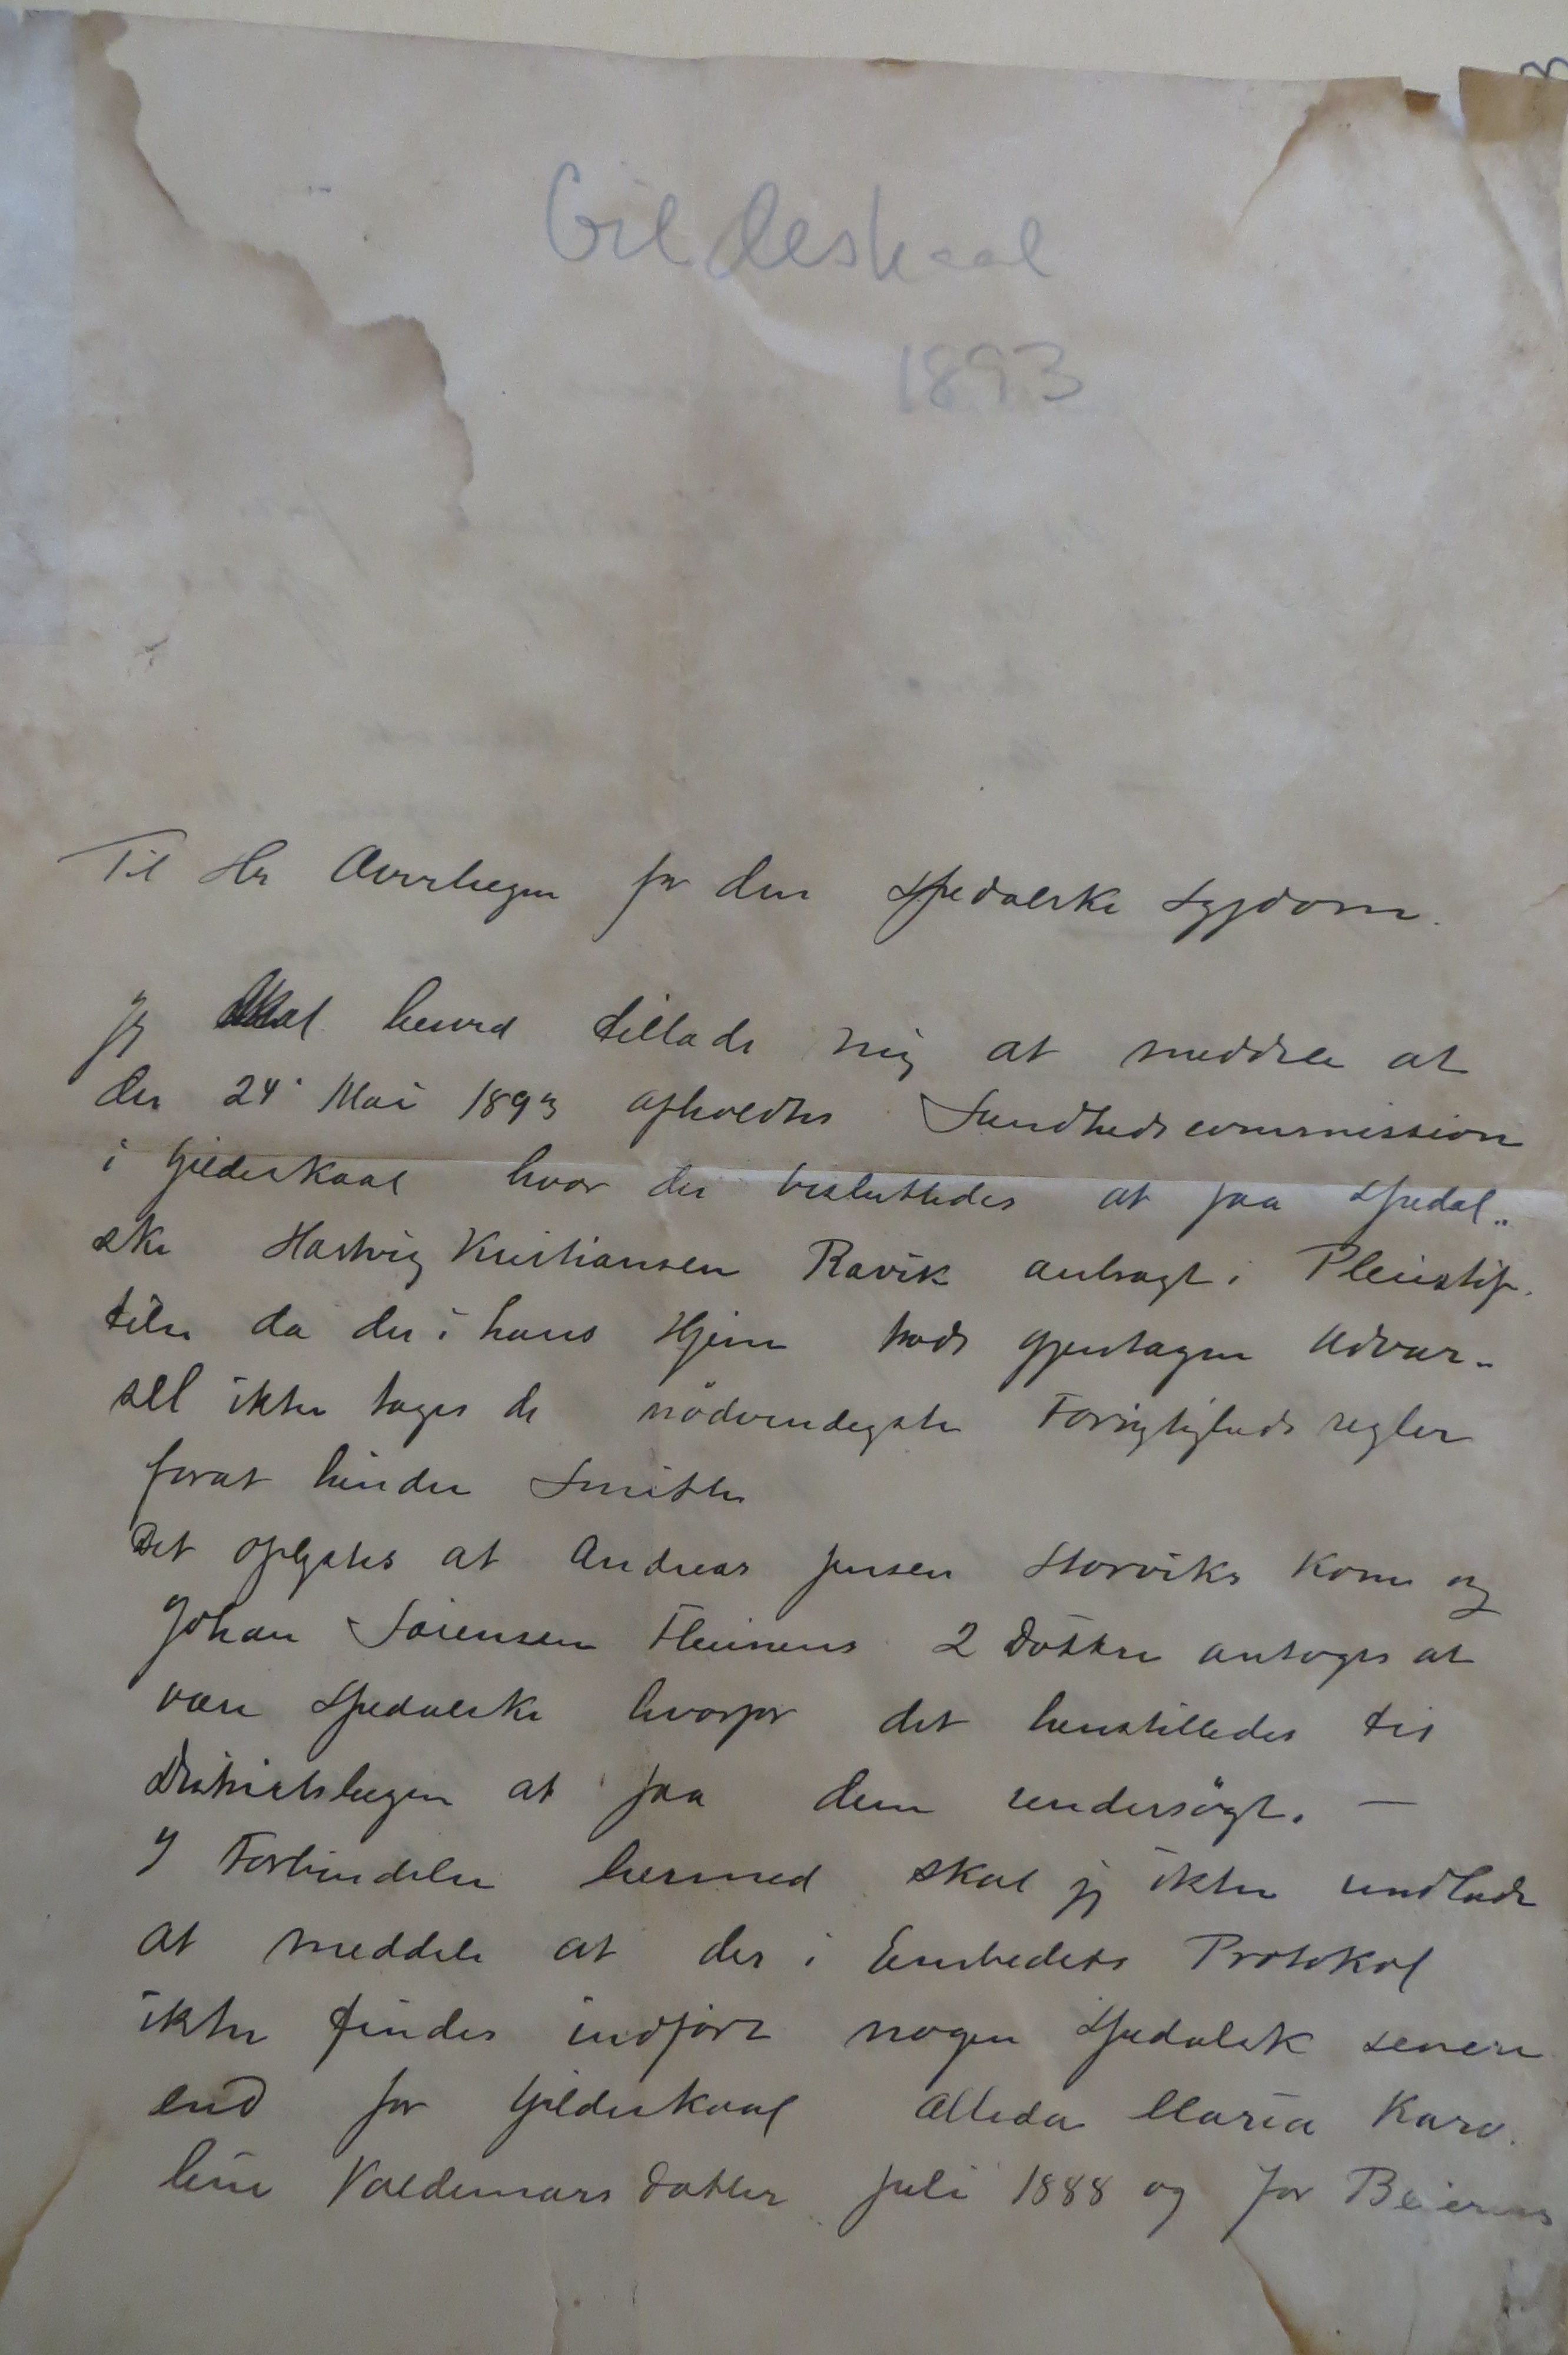 Gildeskaal
1893
Til Hr Overlægen for den spedalske Sygdom.
Jeg skal herved tillade mig at meddele at
den 24. Mai 1893 afholdtes Sundhedscommission
i Gildeskaal hvor det besluttedes at faa spedal„
ske Hartvig Kristiansen Ravik anbragt i Pleiestif-
telse da der i hans Hjem trods gjentagen Advar„
sel ikke tages de nødvendigste Forsigtigheds regler
forat hindre Smitte
Det oplystes at Andreas Jensen Storviks Kone og
Johan Sörensen Fleinens 2 Døttre antoges at
være spedalske hvorfor det henstilledes til
Distriktslægen at faa dem undersögt. —
I Forbindelse hermed skal jeg ikke undlade
at meddele at der i Embedets Protokol
ikke findes indført nogen spedalsk senere
end for Gildeskaal Alleda Maria Karo-
line Valdemars datter Juli 1888 og for Beieren